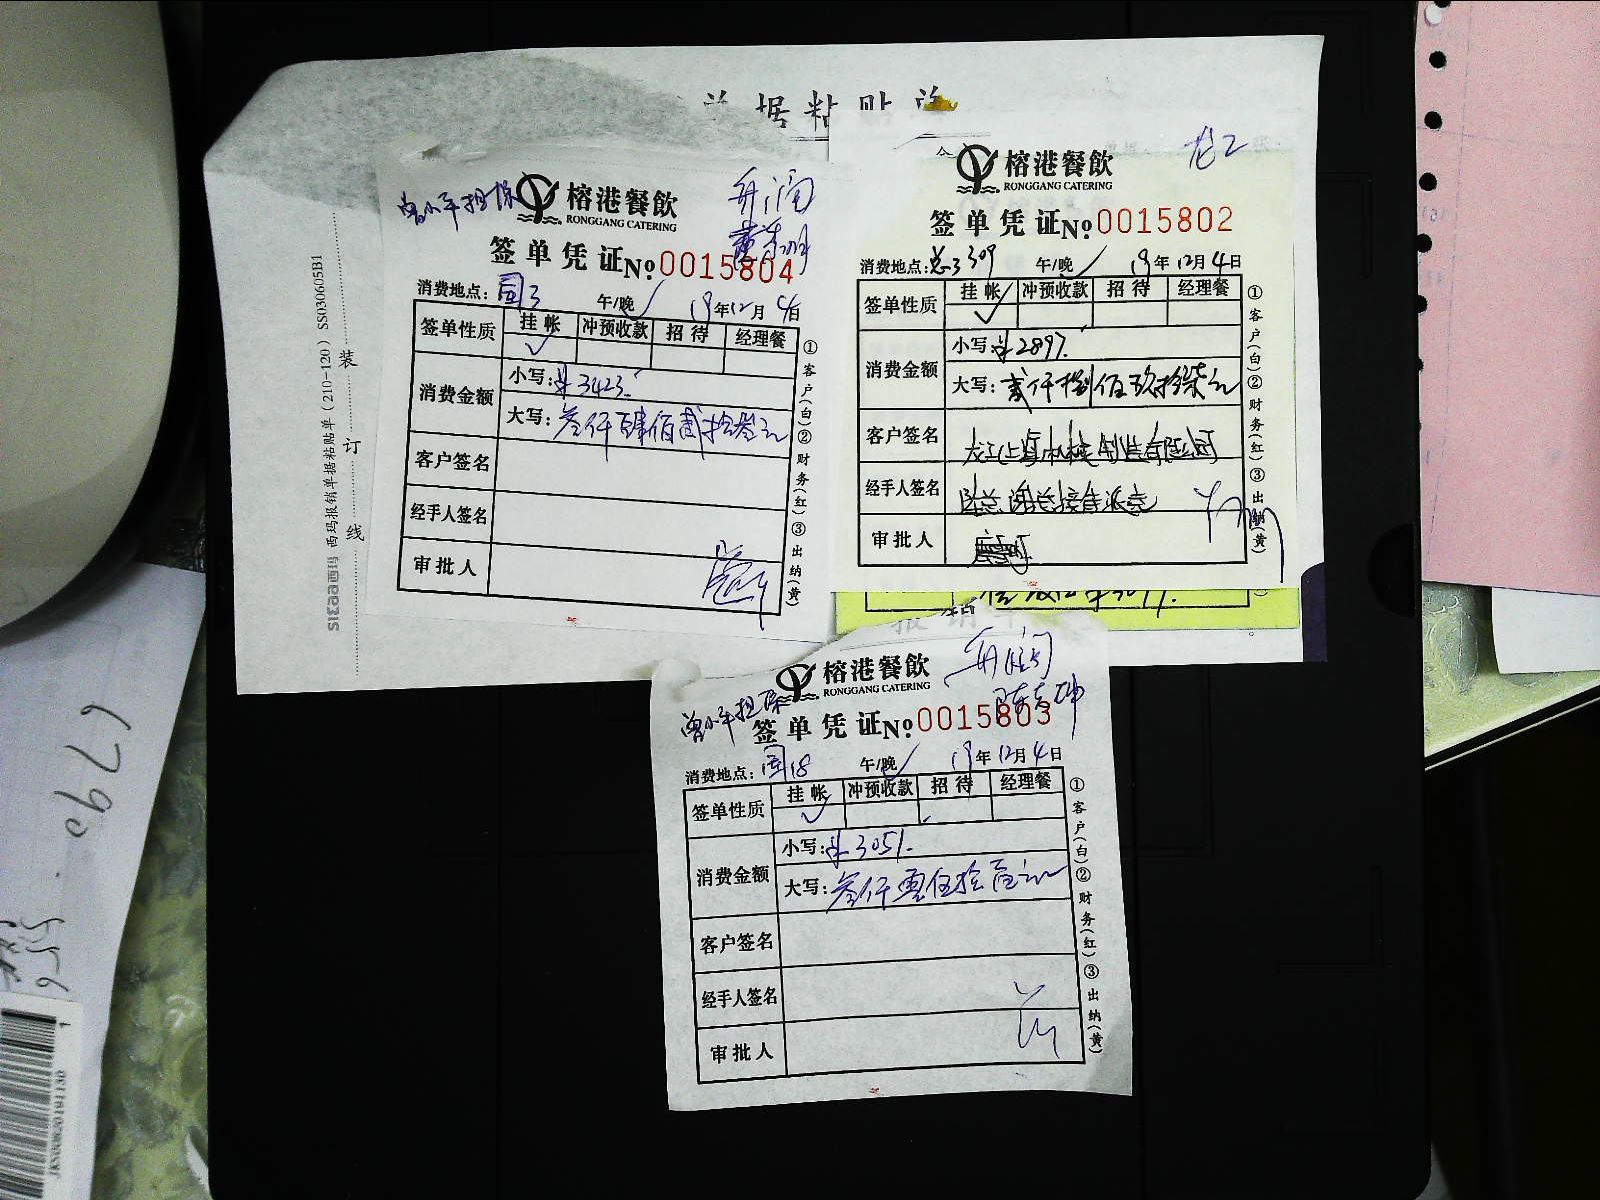 单据粘贴单
SS030605B1
西玛报销单据粘贴单（210-120）
装 订 线
西玛
曾小平担保
榕港餐飲
RONGGANG CATERING
签单凭证 No 0015804
消费地点：
午/晚 19年12月4日
签单性质 挂帐 冲预收款 招待 经理餐
消费金额
小写：¥3423.
大写：叁仟肆佰贰拾叁元
客户签名
经手人签名
审批人
①客户(白)②财务(红)③出纳(黄)
龙工
榕港餐飲
RONGGANG CATERING
签单凭证 No 0015802
消费地点： 309 午/晚 19年12月4日
签单性质 挂帐 冲预收款 招待 经理餐
消费金额
小写：¥2897.
大写：贰仟捌佰玖拾柒元
客户签名 龙工(上海)机械制造有限公司
经手人签名
审批人
①客户(白)②财务(红)③出纳(黄)
曾小平担保
榕港餐飲
RONGGANG CATERING
签单凭证 No 0015803
消费地点： 18 午/晚 19年12月4日
签单性质 挂帐 冲预收款 招待 经理餐
消费金额
小写：¥3051.
大写：叁仟零伍拾壹元
客户签名
经手人签名
审批人
①客户(白)②财务(红)③出纳(黄)
6790